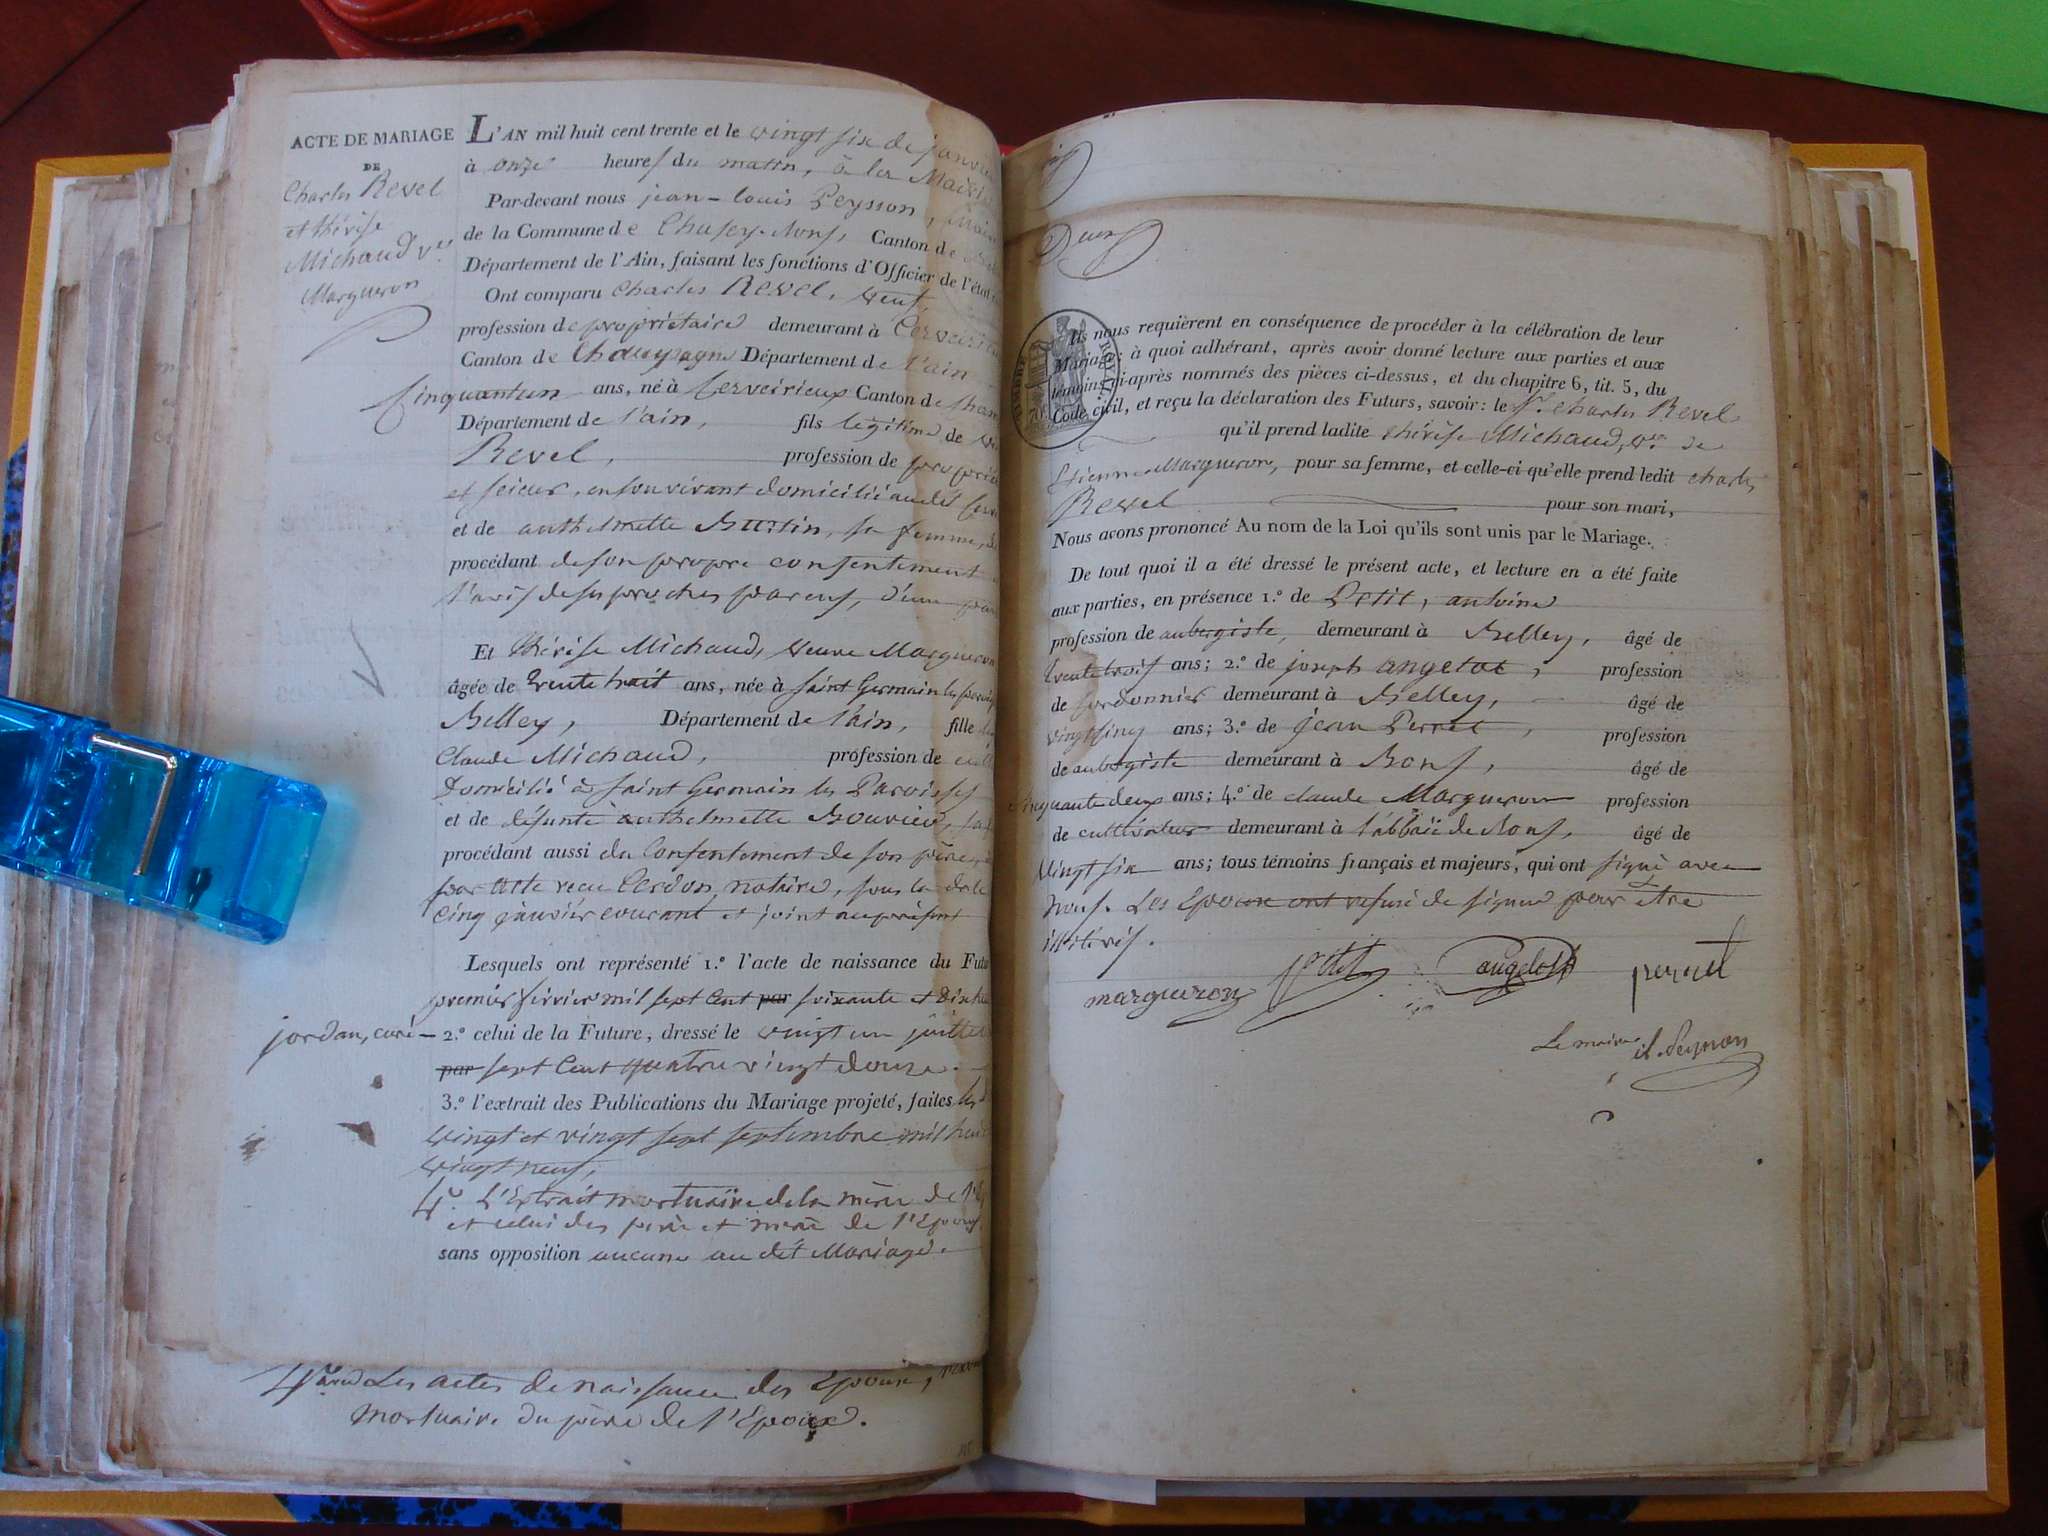 ACTE DE MARIAGE
DE
Charles Revel
et thérèse
Michaud v.ve
Margueron
L'AN mil huit cent trente et le vingt six de janvier
à onze heures du matin, à la
Par-devant nous jean-louis Peysson,
de la Commune de Chasey-Bons, Canton de
Département de l'Ain, faisant les fonctions d'Officier de l'état
Ont comparu Charles Revel, veuf,
profession de propriétaire demeurant à
Canton de Champagne Département de l'ain
Cinquanteun ans, né à Cerveirieux Canton de
Département de l'ain, fils légitime de
Revel, profession de
et en son vivant domicilié audit
et de anthelmette Burtin, sa femme,
procédant de son propre consentement
l'avis de ses proches parens, d'une
Et thérèse Michaud, veuve Margueron
âgée de trente huit ans, née à saint Germain les
Belley, Département de l'ain, fille
Claude Michaud, profession de
Domicilié à saint Germain les Paroisses
et de défunte anthelmette Bouvier,
procédant aussi du Consentement de son père,
par acte reçu Cerdon, notaire, sous la date
Cinq janvier courant et joint au présent
Lesquels ont représenté 1.º l'acte de naissance du
premier février mil sept cent par soixante et
jordan, curé — 2.º celui de la Future, dressé le vingt un juillet
par sept cent quatre vingt douze.
3.º l'extrait des Publications du Mariage projeté, faites les
vingt et vingt sept septembre mil huit
vingt neuf,
4.º L'Extrait mortuaire de la mère de
et celui des père et mère de l'Epoux,
sans opposition aucune au dit Mariage.
Les actes de naissance des Epoux,
mortuaire du père de l'Epoux.
Deux
TIMBRE ROYAL
Ils nous requièrent en conséquence de procéder à la célébration de leur
Mariage; à quoi adhérant, après avoir donné lecture aux parties et aux
témoins ci-après nommés des pièces ci-dessus, et du chapitre 6, tit. 5, du
Code civil, et reçu la déclaration des Futurs, savoir: le S.r Charles Revel
qu'il prend ladite thérèse Michaud, v.ve de
Etienne Margueron, pour sa femme, et celle-ci qu'elle prend ledit charles
Revel pour son mari,
Nous avons prononcé Au nom de la Loi qu'ils sont unis par le Mariage.
De tout quoi il a été dressé le présent acte, et lecture en a été faite
aux parties, en présence 1.º de Petit, antoine
profession de aubergiste, demeurant à Belley, âgé de
trente trois ans; 2.º de joseph angelot, profession
de cordonnier demeurant à Belley, âgé de
vingt cinq ans; 3.º de jean Perret, profession
de aubergiste demeurant à Bons, âgé de
cinquante deux ans; 4.º de claude Margueron profession
de cultivateur demeurant à l'abbaïe de Bons, âgé de
Vingt six ans; tous témoins français et majeurs, qui ont signé avec
nous. Les Epoux ont refusé de signer pour être
illitérés.
margueron petit angelot perret
Le maire j.l. Peysson